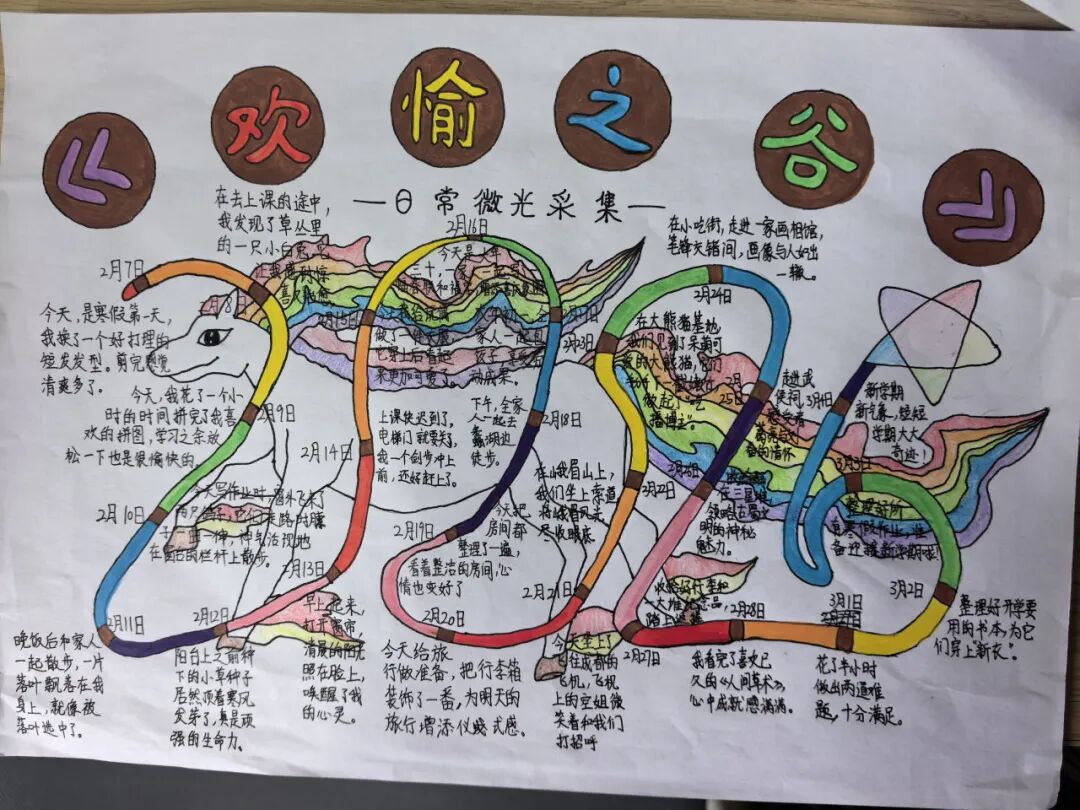 《欢愉之谷》
—日常微光采集—
2月7日
今天,是寒假第一天,
我换了一个好打理的
短发发型。剪完感觉
清爽多了。
2月8日
在去上课的途中,
我发现了草丛里
的一只小白兔,
2月9日
今天,我花了一个小
时的时间拼完了我喜
欢的拼图,学习之余放
松一下也是很愉快的。
2月10日
今天写作业时,窗外飞来了
在
的栏杆上散步。
2月11日
晚饭后和家人
一起散步,一片
落叶飘落在我
身上,就像被
落叶选中了。
2月12日
阳台上之前种
下的小草种子
居然顶着寒风
发芽了,真是顽
强的生命力。
2月13日
早上起来,
打开窗帘,
清晨的阳光
照在脸上,
唤醒了我
的心灵。
2月14日
上课快迟到了,
电梯门就要关了,
我一个剑步冲上
前,还好赶上了。
2月15日
做了一
它穿上后看起
来更加可爱了。
2月16日
今天是
三十,一家
2月18日
下午,全家
人一起去
蠡湖边
徒步。
2月19日
今天把
房间都
整理了一遍,
看着整洁的房间,心
情也变好了
2月20日
今天给旅
行做准备,把行李箱
装饰了一番,为明天的
旅行增添仪式感。
2月21日
今天坐上了
飞往成都的
飞机,飞机
上的空姐微
笑着和我们
打招呼
2月22日
在峨眉山上,
我们坐上索道
将峨眉风光
尽收眼底。
2月23日
在大熊猫基地
我们见到了呆萌可
爱的大熊猫,它们
做起了“吃
播博主”。
2月24日
在小吃街,走进一家画相馆,
笔锋交错间,画像与人如出
一辙。
2月25日
走进武
侯祠,
感受着
诸葛亮与刘
备的情怀
2月26日
在三星堆,
领略古蜀文
明的神秘
魅力。
2月27日
收拾好行李和
一大堆纪念品,
踏上
2月28日
我看完了喜欢已
久的《人间草木》,
心中成就感满满。
3月1日
花了半小时
做出两道难
题,十分满足。
3月2日
整理好开学要
用的书本,为它
们穿上“新衣”。
3月3日
整理好所
有寒假作业,准
备迎接新学期啦!
3月4日
新学期
新气象,短短
学期大大
奇迹!